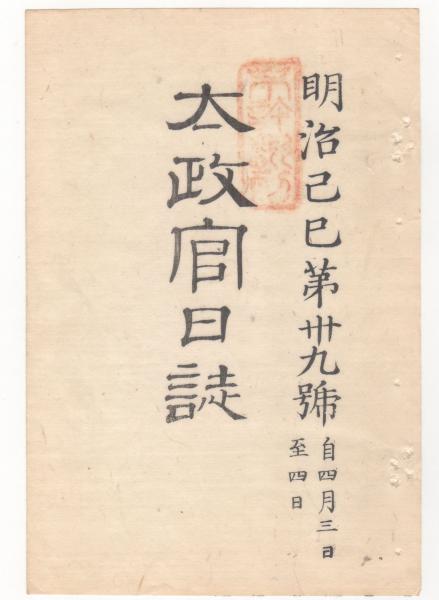 明治己巳第卅九號
自四月三日
至四日
太政官日誌